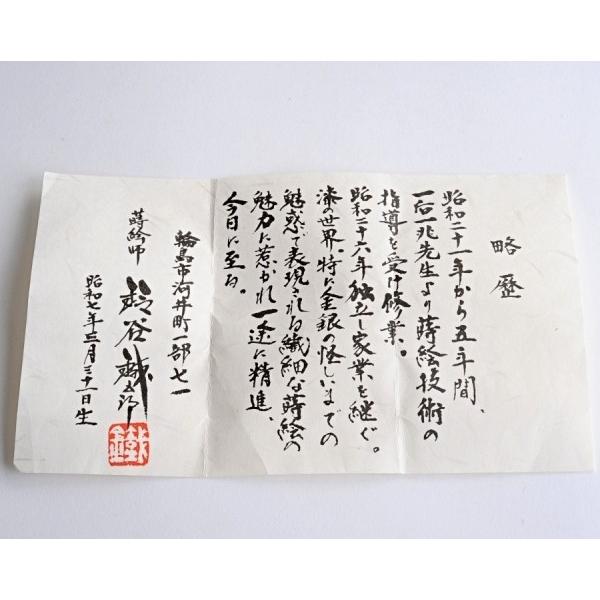 略歴
昭和二十一年から五年間、
一后一兆先生より蒔絵技術の
指導を受け修業。
昭和二十六年独立し家業を継ぐ。
漆の世界、特に金銀の怪しいまでの
魅惑で表現される繊細な蒔絵の
魅力に惹かれ一途に精進、
今日に至る。
輪島市河井町一部七一
蒔絵師 鈴谷鐵五郎
昭和七年三月三十一日生